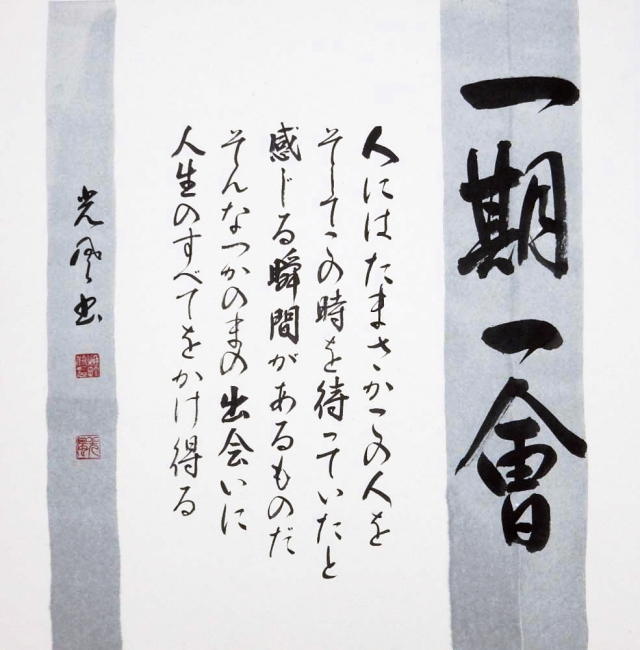 一期一會
人にはたまさかこの人を
そしてこの時を待っていたと
感じる瞬間があるものだ
そんなつかのまの出会いに
人生のすべてをかけ得る
光風書